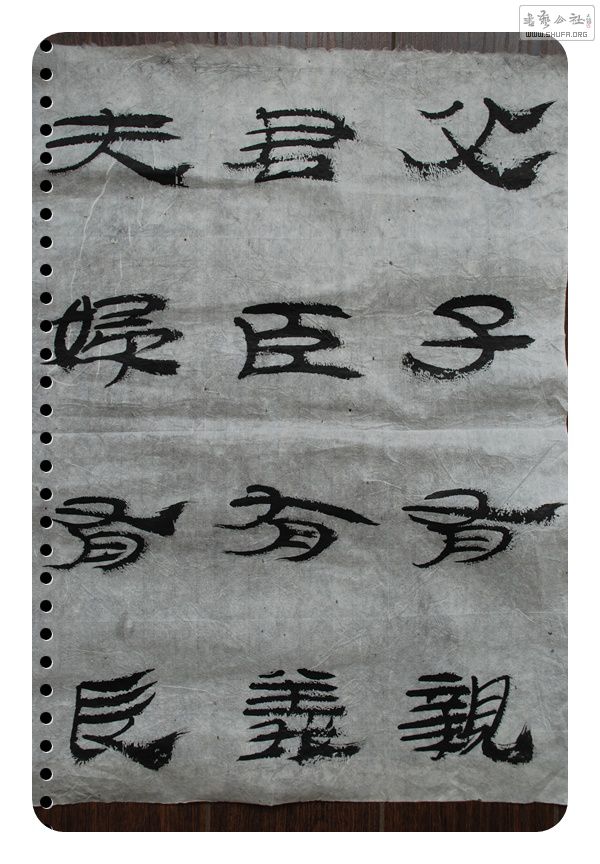 父子有親
君臣有義
夫婦有
書藝公社
WWW.SHUFA.ORG